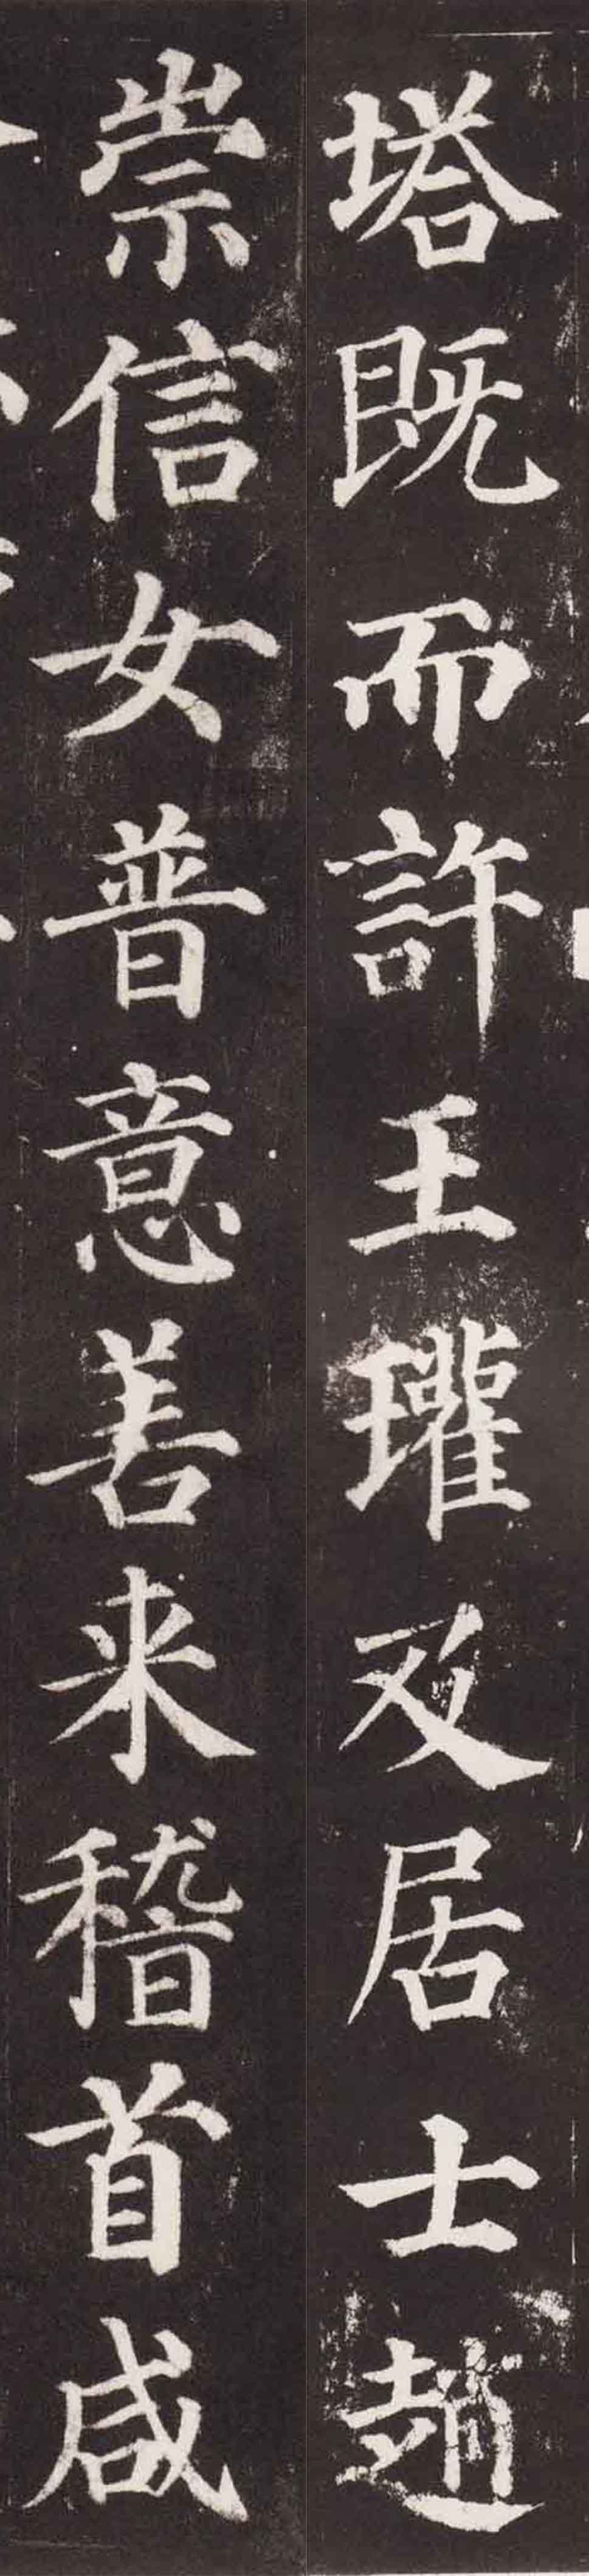 塔既而許王瓘及居士趙
崇信女普意善来稽首咸